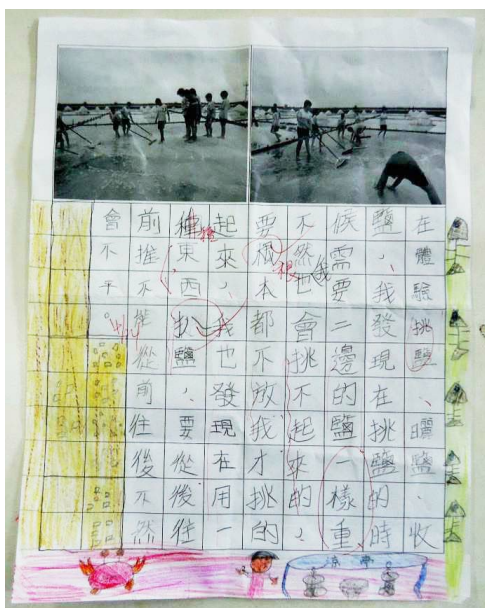 在體驗挑鹽、曬鹽、收
鹽，我發現在挑鹽的時
候需要二邊的鹽一樣重
不然會挑不起來的，
要根本都不放我才挑的
起來，我也發現在用一
種東西扒鹽，要從後往
前推不能從前往後不然
會不平。
種
根
我
涼亭